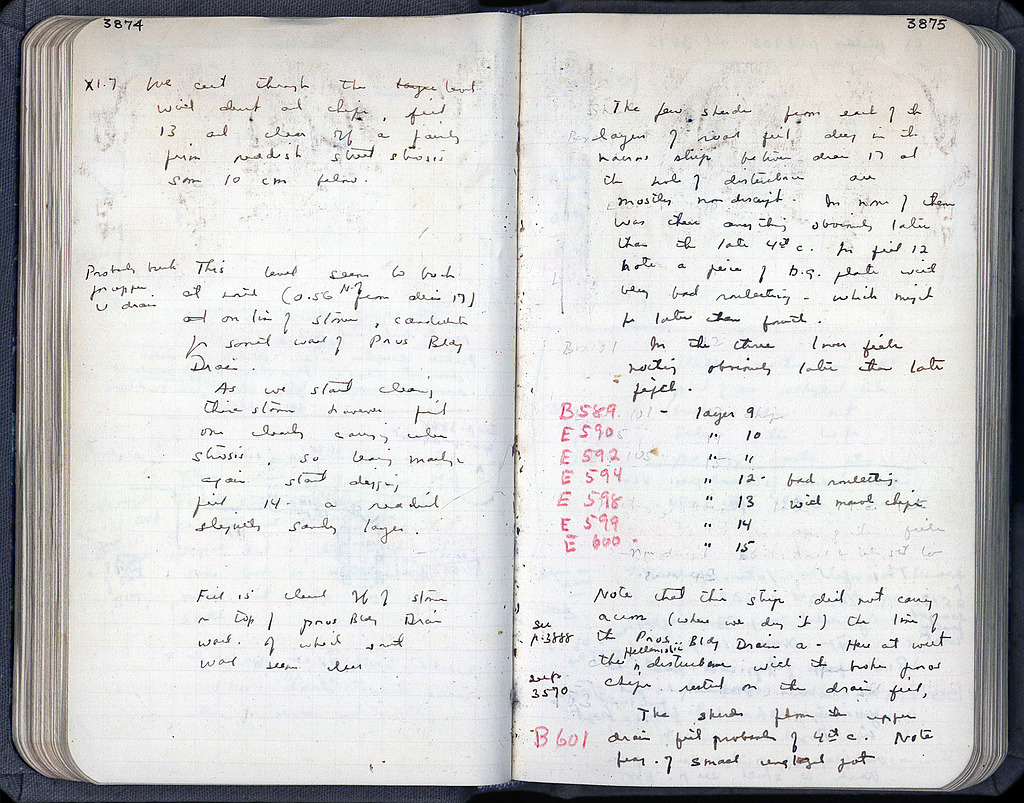 3874
XI.7 We cut through the level
with dump and chips, fill
13 and clear off a fairly
firm reddish street strosis
some 10 cm below.
Probably back
for upper
drain
This level seems to
at north (0.56 N. of from drain 17)
on line of stones, candidate
for south wall of Poros Bldg
Drain.
As we start clearing
these stones however fill
one clearly
strosis, so leaving
again start digging
fill 14 - a reddish
slightly sandy layer.
Fill 15 cleared off of stones
on top of poros Bldg Drain
wall. of which south
wall seems clear
3875
The few sherds from each of the
layers of road fill deep in the
narrow strip between drain 17 and
the of disturbance are
mostly nondescript. In none of them
was there anything obviously later
than the late 4th c. In fill 12
note a piece of b.g. plate with
very bad rouletting - which might
be later than fourth.
In the three lower fills
nothing obviously later than late
fifth.
B 589 - layer 9
E 590 " 10
E 592 " 11
E 594 " 12 - bad rouletting.
E 598 " 13 with marble chips
E 599 " 14
E 600 " 15
Note that this strip did not carry
across (where we dug it) the line of
see
p. 3888
the Poros Bldg Drain a - Here at west
the Hellenistic disturbance with the broken poros
3570
chips rested on the drain fill,
The sherds from the upper
B 601 drain fill probably of 4th c. Note
frag. of small